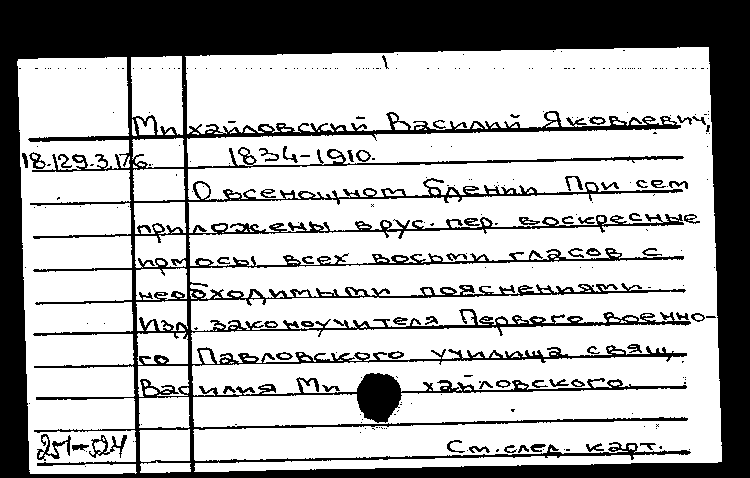 Михайловский, Василий Яковлевич,
18.129.3.176. 1834-1910.
О всенощном бдении При сем
приложены в рус. пер. воскресные
ирмосы всех восьми гласов с
необходимыми пояснениями.
Изд. законоучителя Первого военно-
го Павловского училища свящ.
Василия Михайловского.
251-524 См. след. карт.